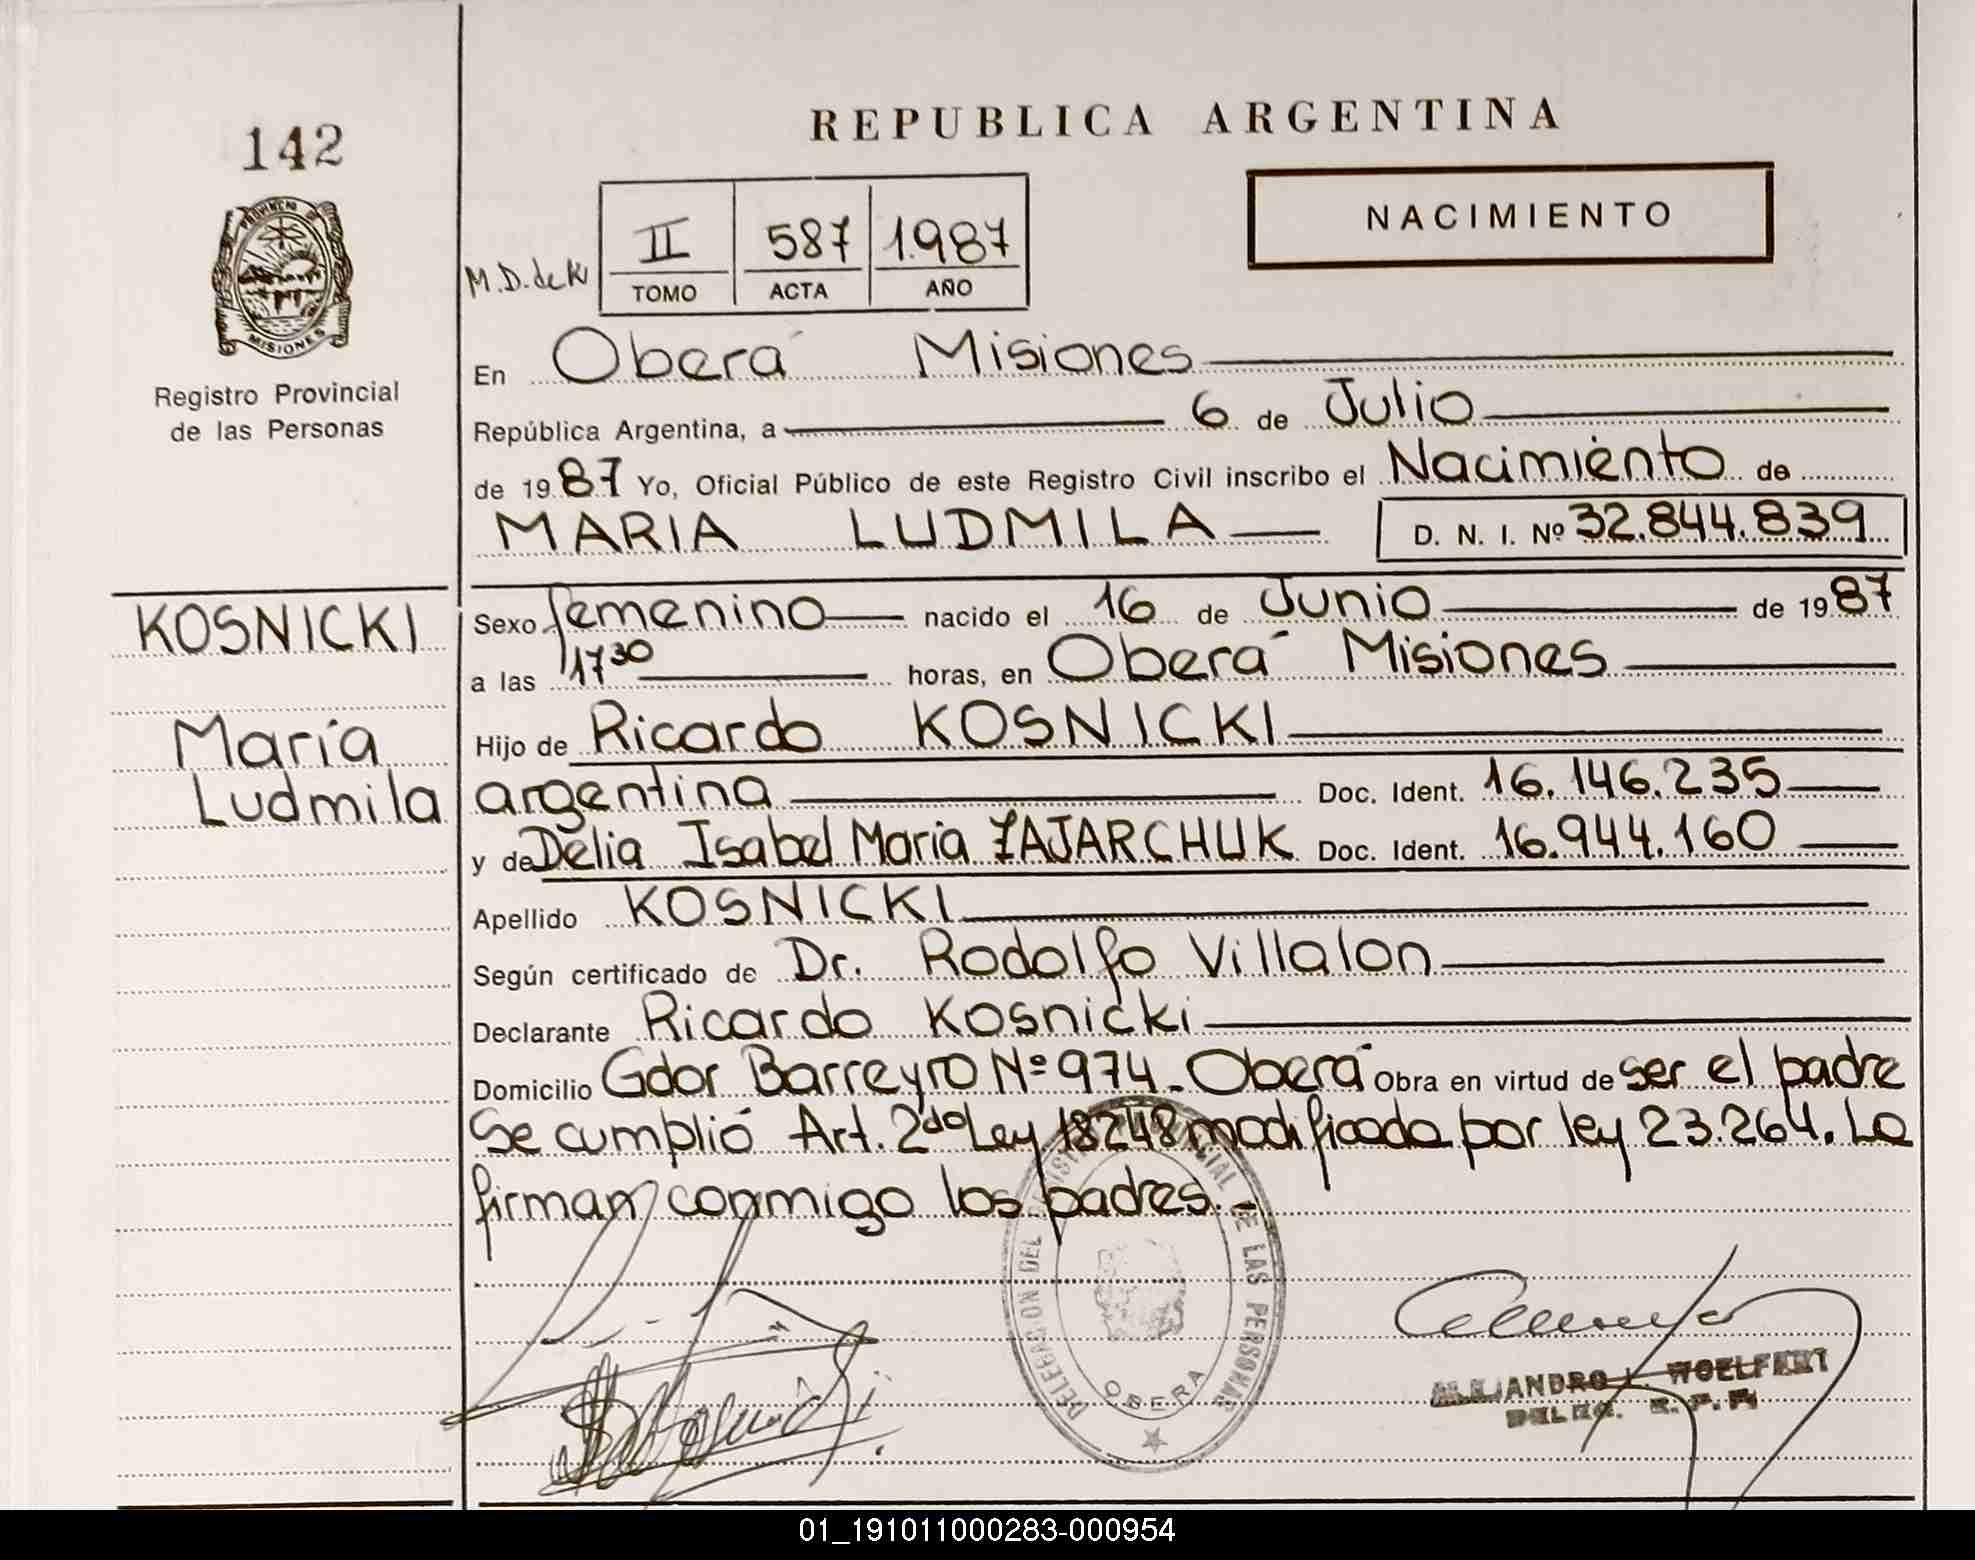 142
REPUBLICA ARGENTINA
NACIMIENTO
M.D. de K
II 587 1.987
TOMO ACTA AÑO
PROVINCIA DE
MISIONES
Registro Provincial
de las Personas
En Oberá Misiones
República Argentina, a 6 de Julio
de 1987 Yo, Oficial Público de este Registro Civil inscribo el Nacimiento de
MARIA LUDMILA D. N. I. Nº 32.844.839
KOSNICKI
María
Ludmila
Sexo femenino nacido el 16 de Junio de 1987
a las 17 30 horas, en Oberá Misiones
Hijo de Ricardo KOSNICKI
argentina Doc. Ident. 16.146.235
y de Delia Isabel María ZAJARCHUK Doc. Ident. 16.944.160
Apellido KOSNICKI
Según certificado de Dr. Rodolfo Villalon
Declarante Ricardo Kosnicki
Domicilio Gdor Barreyro Nº 974 - Oberá Obra en virtud de ser el padre
Se cumplió Art. 2do Ley 18248 modificada por ley 23.264. La
firman conmigo los padres.-
DELEGACION DEL REGISTRO PROVINCIAL DE LAS PERSONAS
OBERA
ALEJANDRO L. WOELFERT
DELEG. R. P. P.
01_191011000283-000954